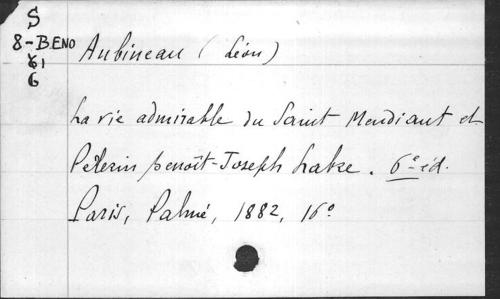 S
8-BENO
61
6
Aubineau (Léon)
La vie admirable du Saint Mendiant et
Pèlerin benoît-Joseph Labre. 6e éd.
Paris, Palmé, 1882, 16°